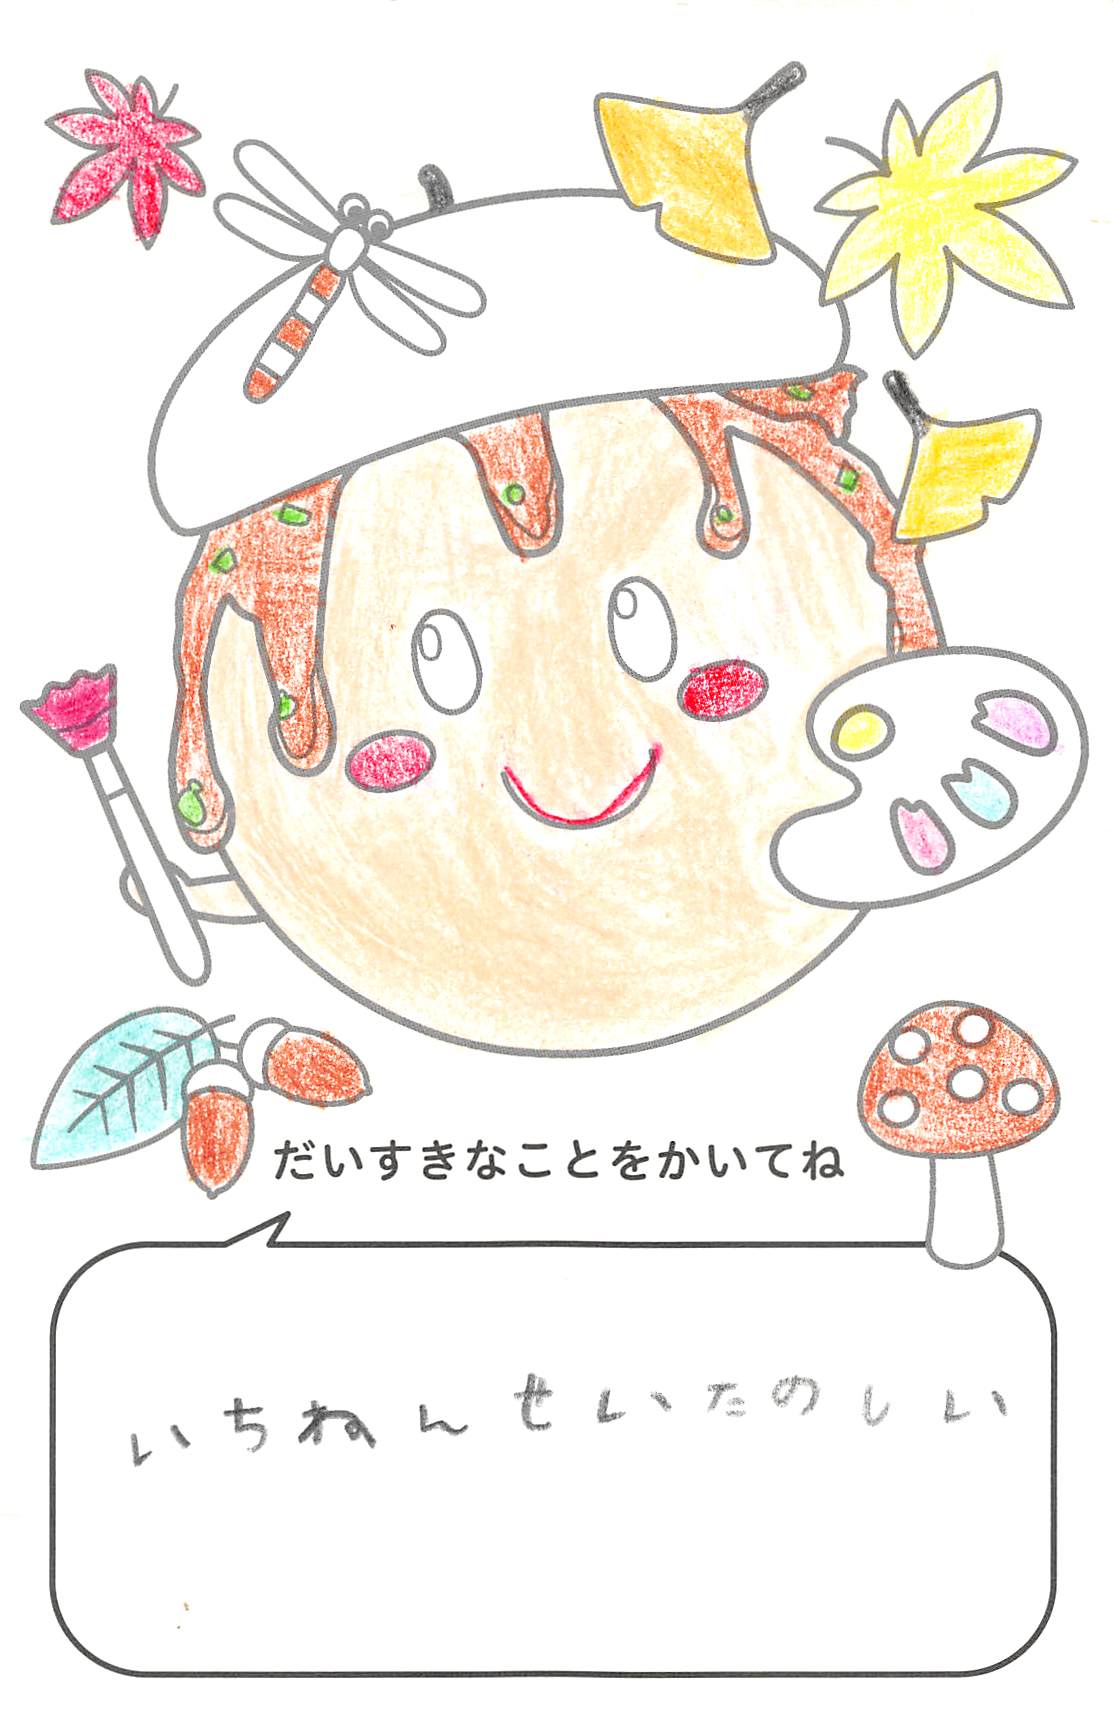 だいすきなことをかいてね
いちねんせいたのしい